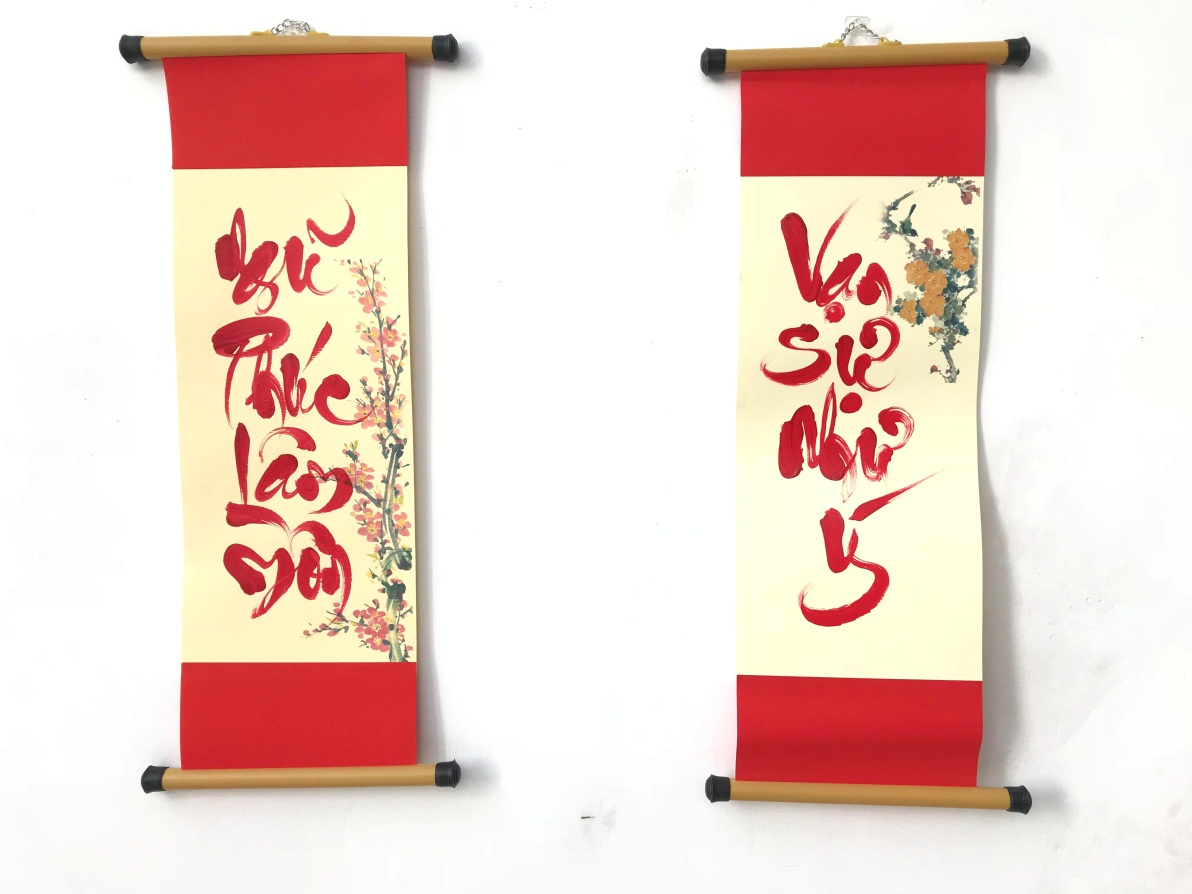 Ngũ
Phúc
Lâm
Môn
Vạn
Sự
Như
Ý